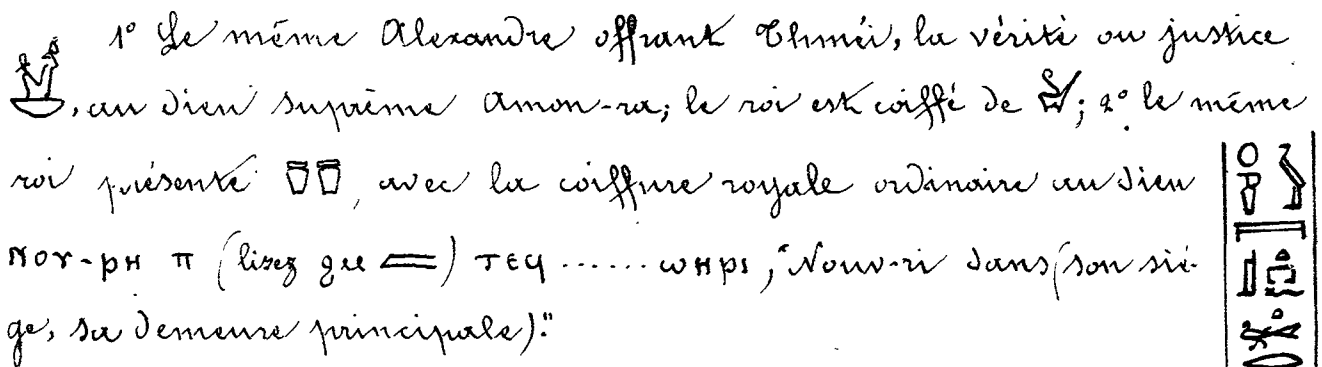 1° Le même Alexandre offrant Thméi, la vérité ou justice
, au dieu suprème Amon-ra; le roi est coiffé de ; 2° le même
roi présente , avec la coiffure royale ordinaire au dieu
ⲚⲞⲨ-ⲢⲎ Ⲡ (lisez que ) ⲦⲈϤ ...... ϢⲎⲢⲒ, "Nouv-ri dans (son siè-
ge, sa demeure principale)."